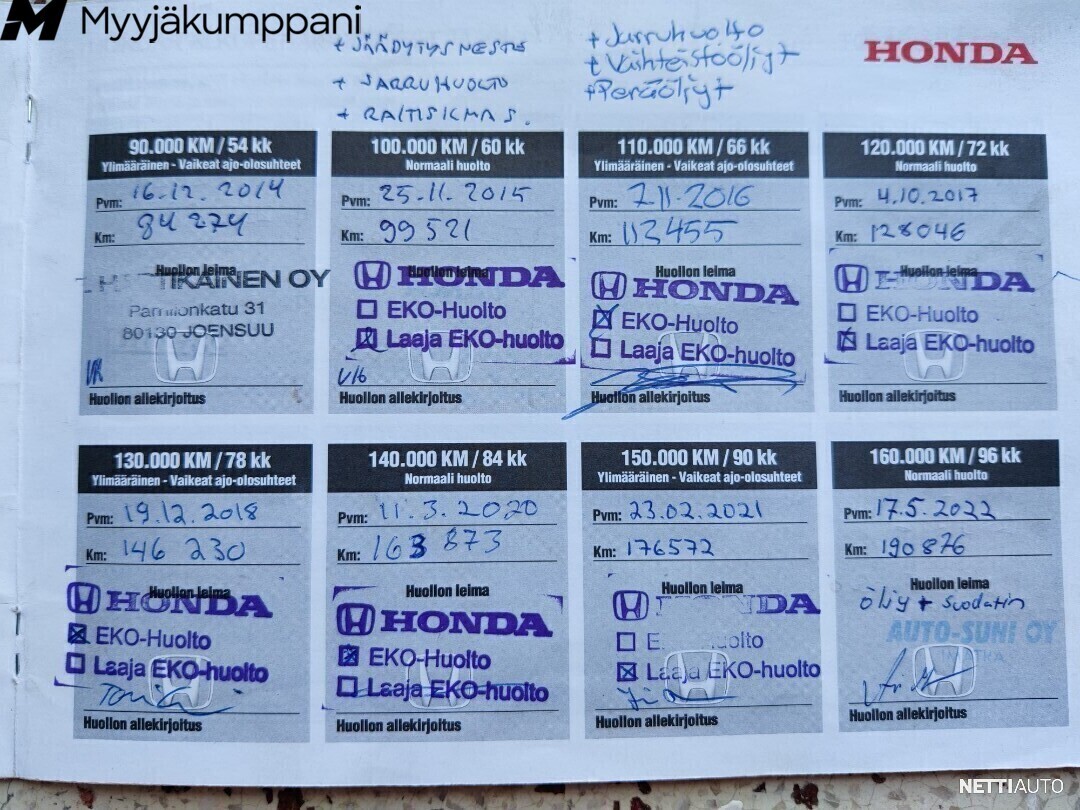 Myyjäkumppani
+ JÄÄDYTYSNESTE
+ JARRUHUOLTO
+ RAITISILMA S.
+ Jarruhuolto
+ Vaihteistoöljyt
+ Peräöljyt
HONDA
90.000 KM / 54 kk
Ylimääräinen - Vaikeat ajo-olosuhteet
Pvm: 16.12.2014
Km: 84 274
Huollon leima
TIKAINEN OY
Pamilonkatu 31
80130 JOENSUU
Huollon allekirjoitus
100.000 KM / 60 kk
Normaali huolto
Pvm: 25.11.2015
Km: 99 521
Huollon leima
HONDA
EKO-Huolto
Laaja EKO-huolto
Huollon allekirjoitus
110.000 KM / 66 kk
Ylimääräinen - Vaikeat ajo-olosuhteet
Pvm: 7.11.2016
Km: 113455
Huollon leima
HONDA
EKO-Huolto
Laaja EKO-huolto
Huollon allekirjoitus
120.000 KM / 72 kk
Normaali huolto
Pvm: 4.10.2017
Km: 128046
Huollon leima
HONDA
EKO-Huolto
Laaja EKO-huolto
Huollon allekirjoitus
130.000 KM / 78 kk
Ylimääräinen - Vaikeat ajo-olosuhteet
Pvm: 19.12.2018
Km: 146 230
Huollon leima
HONDA
EKO-Huolto
Laaja EKO-huolto
Huollon allekirjoitus
140.000 KM / 84 kk
Normaali huolto
Pvm: 11.3.2020
Km: 163 873
Huollon leima
HONDA
EKO-Huolto
Laaja EKO-huolto
Huollon allekirjoitus
150.000 KM / 90 kk
Ylimääräinen - Vaikeat ajo-olosuhteet
Pvm: 23.02.2021
Km: 176572
Huollon leima
HONDA
Laaja EKO-huolto
Huollon allekirjoitus
160.000 KM / 96 kk
Normaali huolto
Pvm: 17.5.2022
Km: 190876
Huollon leima
öljy + suodatin
AUTO-SUNI OY
IMATRA
Huollon allekirjoitus
NETTIAUTO